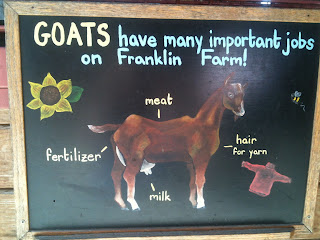 GOATS have many important jobs
on Franklin Farm!
meat
hair
for yarn
fertilizer
milk